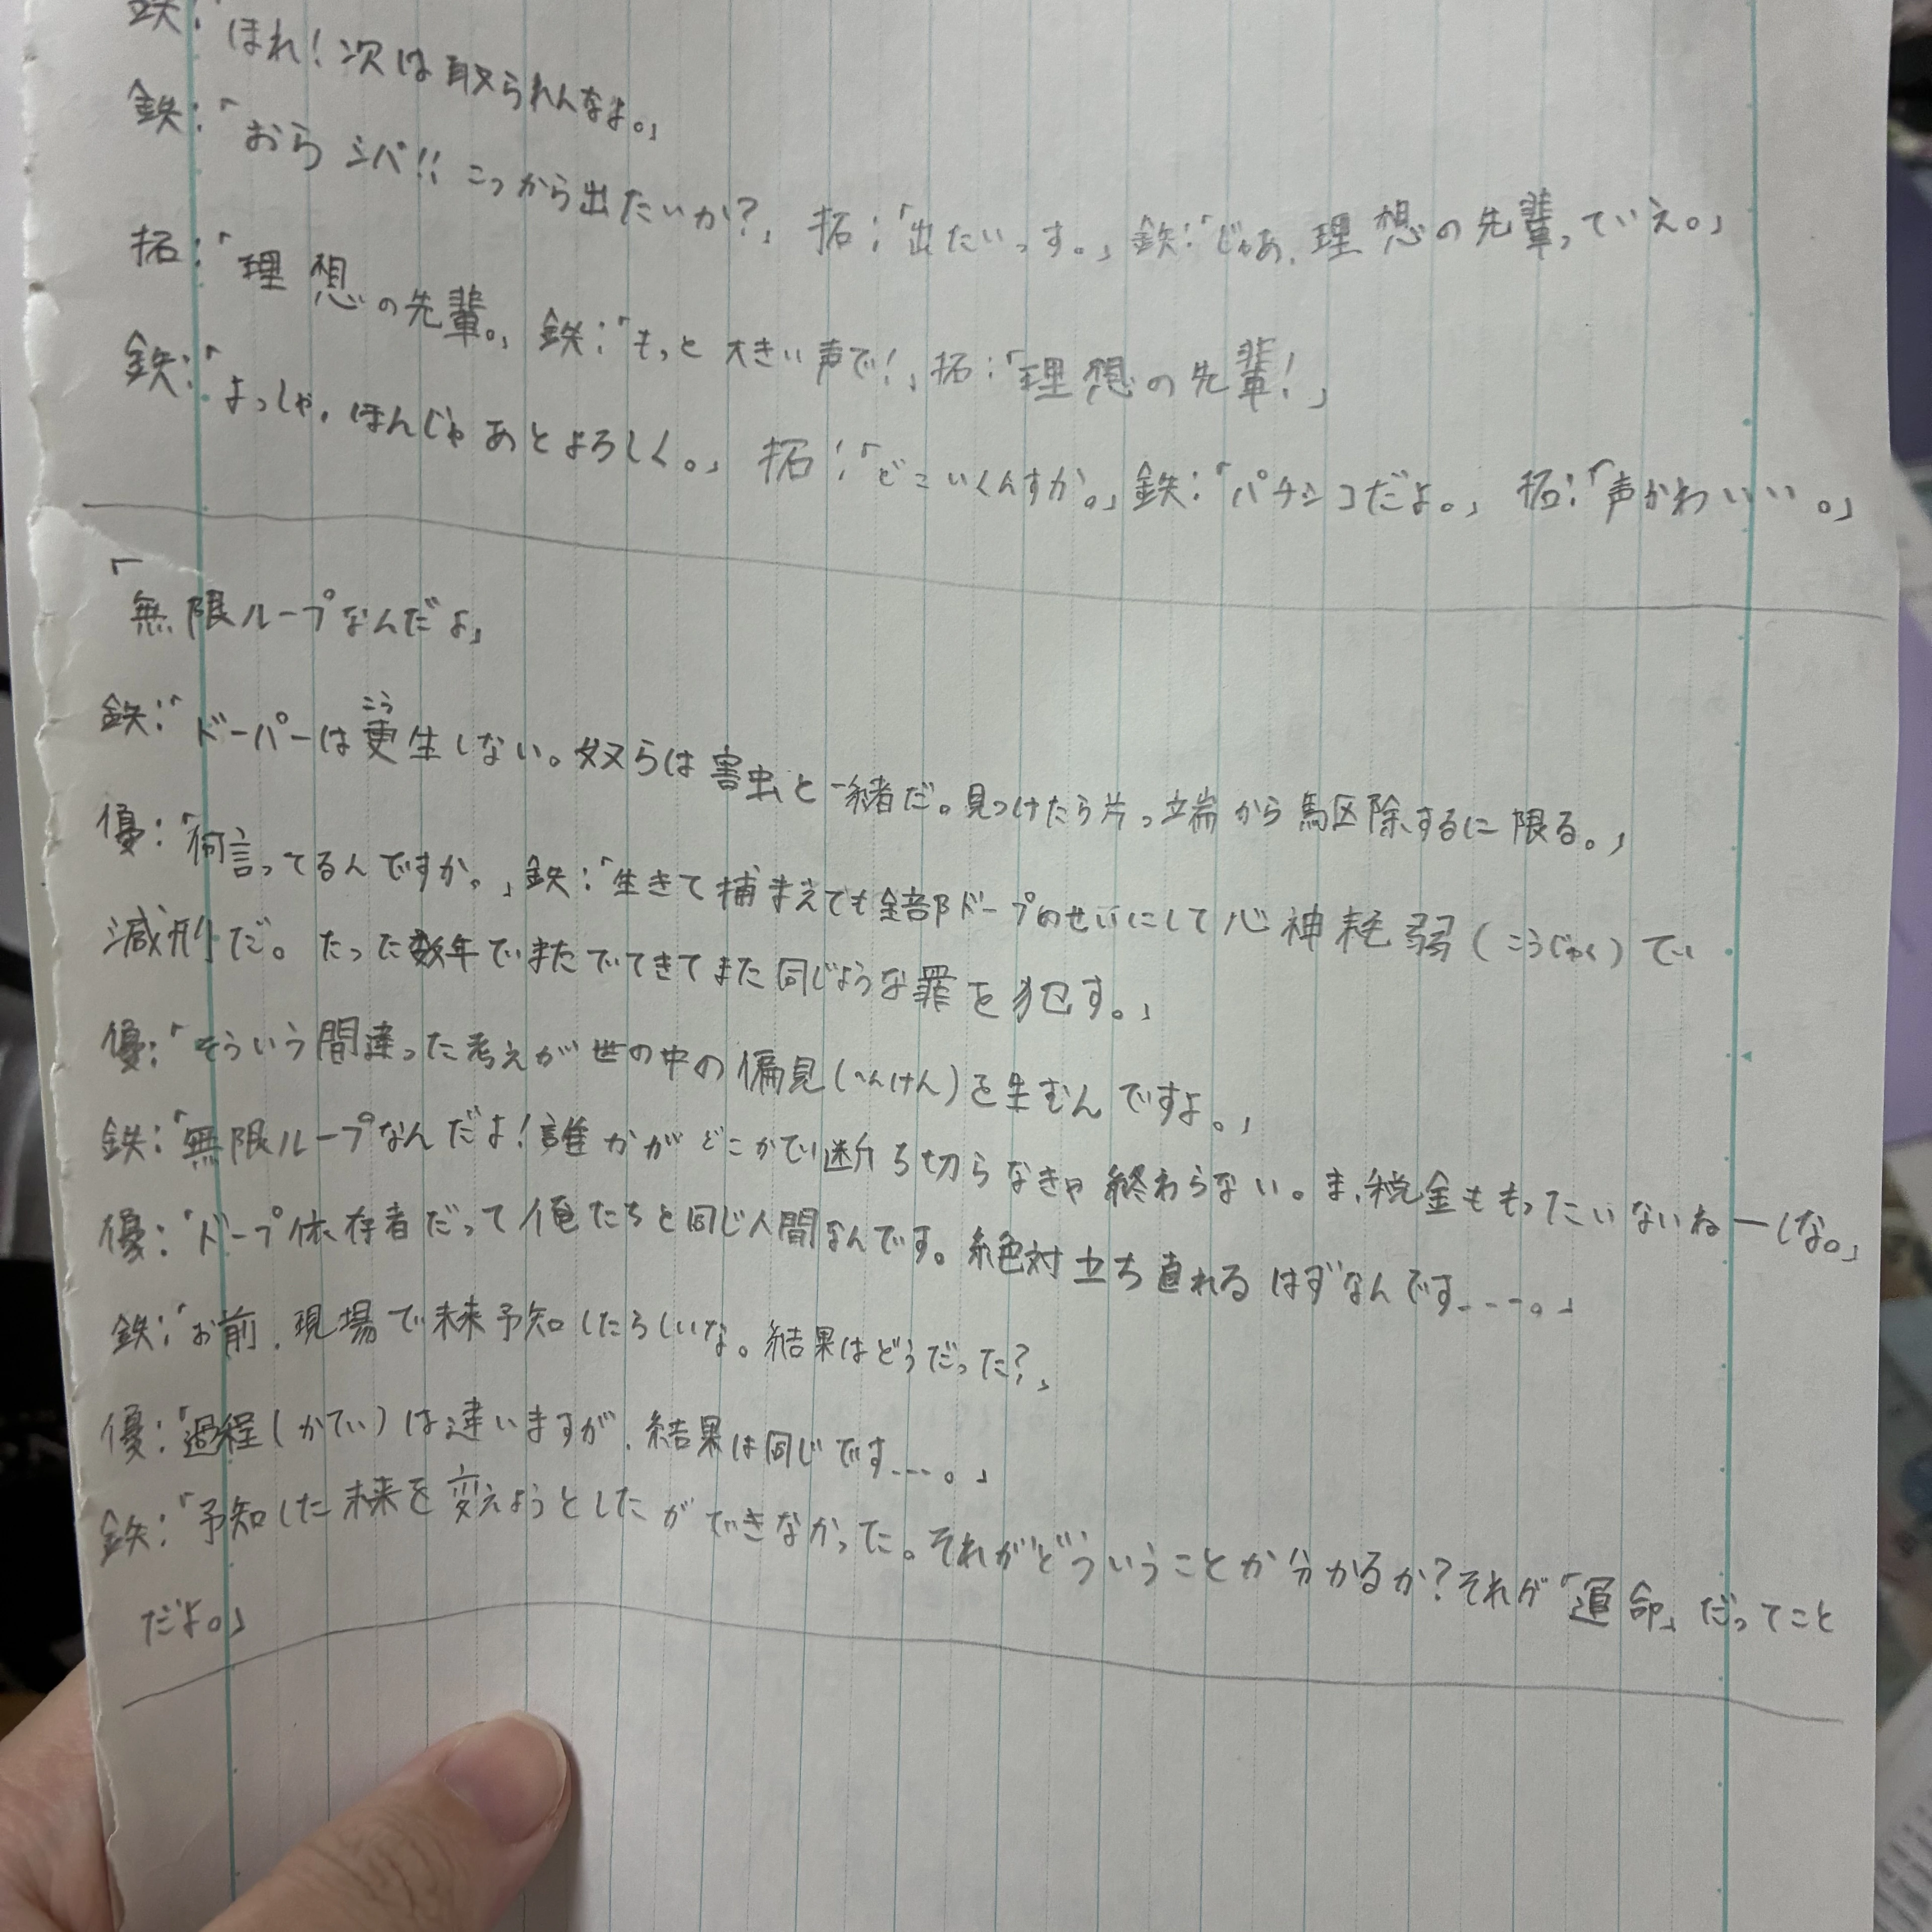 鉄:「ほれ!次は取られんなよ。」
鉄:「おらシバ!!こっから出たいか?」拓:「出たいっす。」鉄:「じゃあ、理想の先輩っていえ。」
拓:「理想の先輩。」鉄:「もっと大きい声で!」拓:「理想の先輩!」
鉄:「よっしゃ。ほんじゃあとよろしく。」拓:「どこいくんすか。」鉄:「パチンコだよ。」拓:「声かわいい。」
「無限ループなんだよ」
鉄:「ドーパーは更(こう)生しない。奴らは害虫と一緒だ。見つけたら片っ端から駆除するに限る。」
優:「何言ってるんですか。」鉄:「生きて捕まえても全部ドープのせいにして心神耗弱(こうじゃく)で
減刑だ。たった数年でまたでてきてまた同じような罪を犯す。」
優:「そういう間違った考えが世の中の偏見(へんけん)を生むんですよ。」
鉄:「無限ループなんだよ!誰かがどこかで断ち切らなきゃ終わらない。ま、税金ももったいないねーしな。」
優:「ドープ依存者だって俺たちと同じ人間なんです。絶対立ち直れるはずなんです----。」
鉄:「お前、現場で未来予知したらしいな。結果はどうだった?」
優:「過程(かてい)は違いますが、結果は同じです---。」
鉄:「予知した未来を変えようとしたができなかった。それがどういうことか分かるか?それが「運命」だってこと
だよ。」